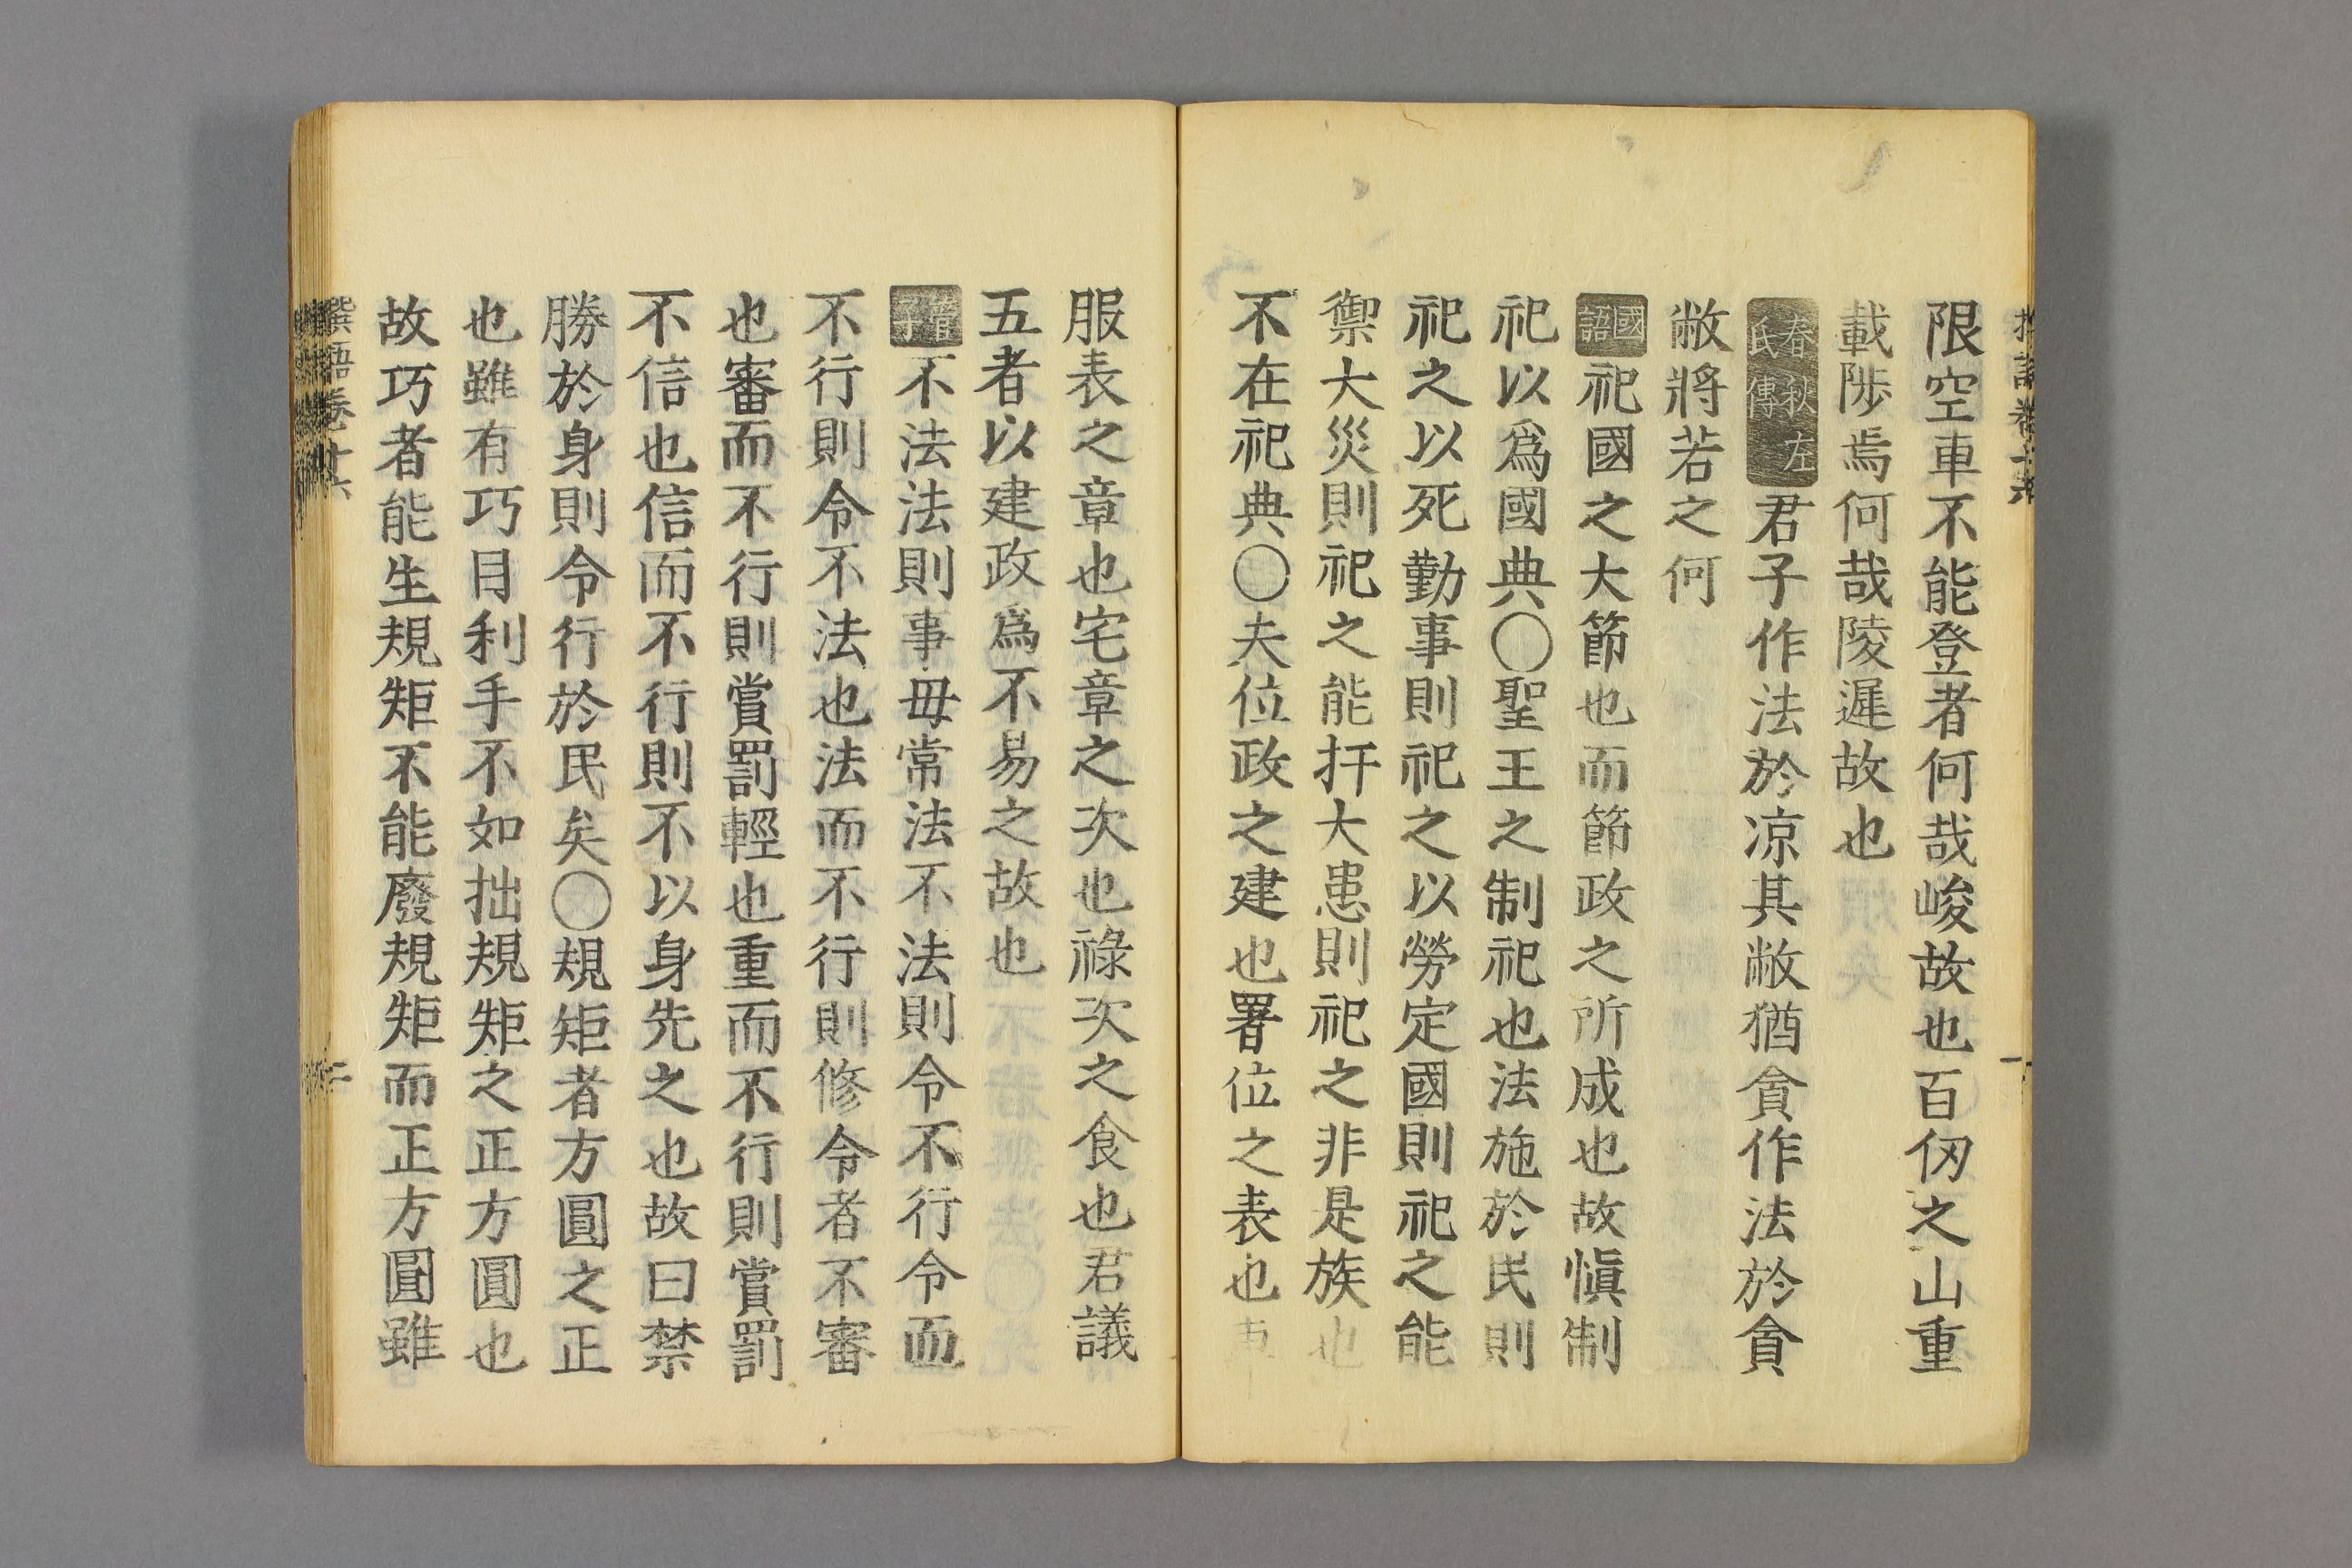 限空車不能登者何哉峻故也百仞之山重
載陟焉何哉陵遲故也
春秋左氏傳君子作法於凉其敝猶貪作法於貪
敝將若之何
國語祀國之大節也而節政之所成也故愼制
祀以爲國典〇聖王之制祀也法施於民則
祀之以死勤事則祀之以勞定國則祀之能
禦大災則祀之能扞大患則祀之非是族也
不在祀典〇夫位政之建也署位之表也車
服表之章也宅章之次也祿次之食也君議
五者以建政爲不易之故也
管子不法法則事毋常法不法則令不行令而
不行則令不法也法而不行則修令者不審
也審而不行則賞罰輕也重而不行則賞罰
不信也信而不行則不以身先之也故曰禁
勝於身則令行於民矣〇規矩者方圓之正
也雖有巧目利手不如拙規矩之正方圓也
故巧者能生規矩不能廢規矩而正方圓雖
撰語卷廿六
二